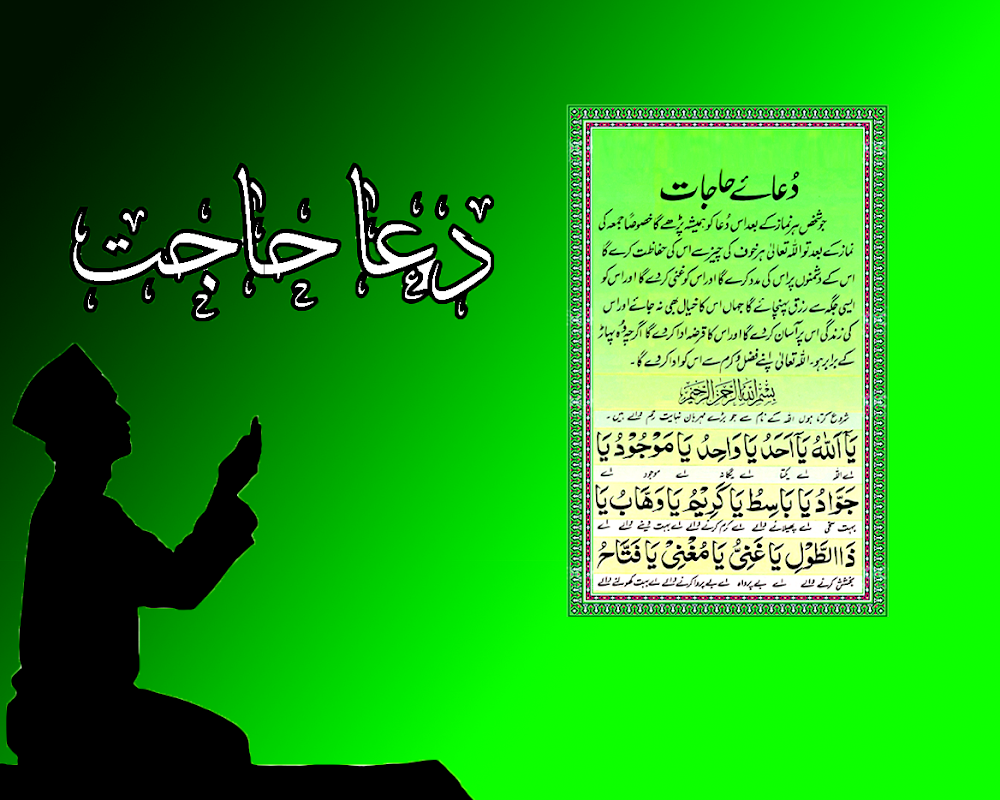 دعا حاجت
دُعائے حاجات
جو شخص ہر نماز کے بعد اس دُعا کو ہمیشہ پڑھے گا خصوصًا جمعہ کی
نماز کے بعد تو اللہ تعالیٰ ہر خوف کی چیز سے اس کی حفاظت کرے گا
اس کے دشمنوں پر اس کی مدد کرے گا اور اس کو غنی کر دے گا اور اس کو
ایسی جگہ سے رزق پہنچائے گا جہاں اس کا خیال بھی نہ جائے اور اس
کی زندگی اس پر آسان کر دے گا اور اس کا قرضہ ادا کر دے گا اگرچہ وہ پہاڑ
کے برابر ہو، اللہ تعالیٰ اپنے فضل و کرم سے اس کو ادا کر دے گا۔
بِسْمِ اللهِ الرَّحْمٰنِ الرَّحِيْمِ
شروع کرتا ہوں اللہ کے نام سے جو بڑے مہربان نہایت رحم والے ہیں۔
يَآ اَللّٰهُ يَآ اَحَدُ يَا وَاحِدُ يَا مَوْجُوْدُ يَا
اے اللہ اے یکتا اے یگانہ اے موجود اے
جَوَّادُ يَا بَاسِطُ يَا كَرِيْمُ يَا وَهَّابُ يَا
بہت سخی اے پھیلانے والے اے کرم کرنے والے اے بہت دینے والے اے
ذَا الطَّوْلِ يَا غَنِيُّ يَا مُغْنِيْ يَا فَتَّاحُ
بخشش کرنے والے اے بے پرواہ اے بے پروا کرنے والے اے بہت کھولنے والے